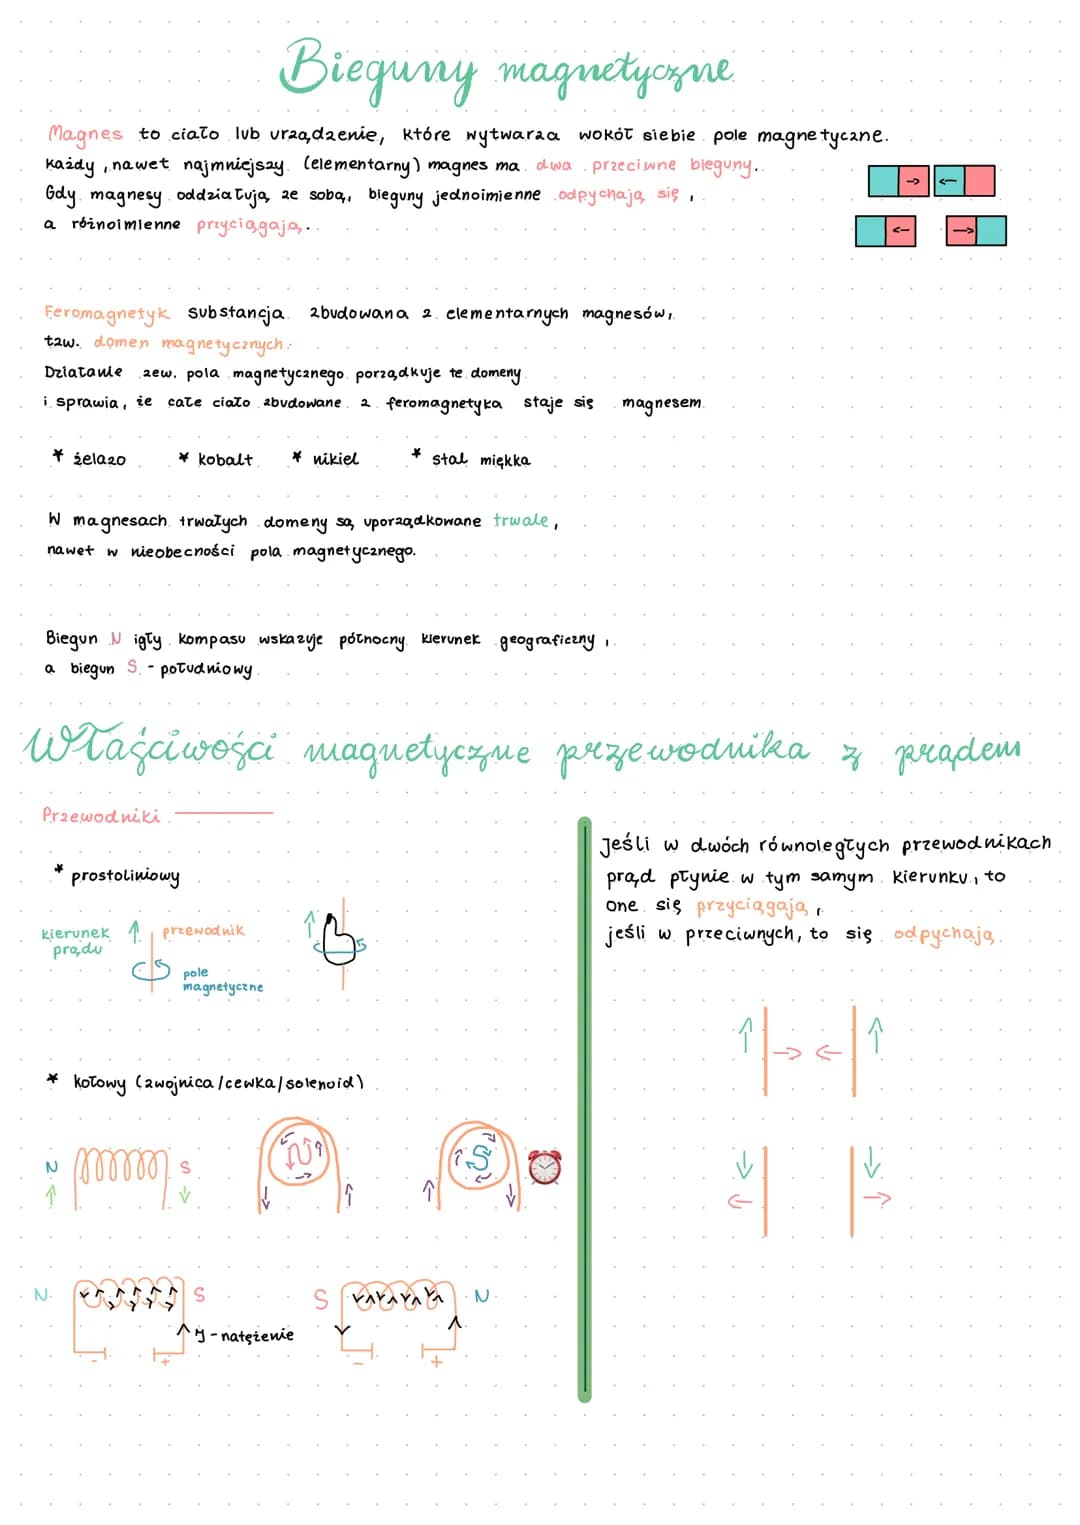 Bieguny magnetyczne
Magnes to ciało lub urządzenie, które wytwarza wokół siebie pole magnetyczne.
Każdy, nawet najmniejszy (elementarny) magnes ma dwa przeciwne bieguny.
Gdy magnesy oddziałują ze sobą, bieguny jednoimienne odpychają się,
a różnoimienne przyciągają.
Feromagnetyk substancja zbudowana z elementarnych magnesów,
tzw. domen magnetycznych.
Działanie zew. pola magnetycznego porządkuje te domeny
i sprawia, że całe ciało zbudowane z feromagnetyka staje się magnesem.
* żelazo * kobalt * nikiel * stal miękka
W magnesach trwałych domeny są uporządkowane trwale,
nawet w nieobecności pola magnetycznego.
Biegun N igły kompasu wskazuje północny kierunek geograficzny,
a biegun S - południowy
Właściwości magnetyczne przewodnika z prądem
Przewodniki
* prostoliniowy
kierunek prądu
przewodnik
pole magnetyczne
* kołowy (zwojnica/cewka/solenoid)
N S N S
N S S N
J - natężenie
- + - +
Jeśli w dwóch równoległych przewodnikach
prąd płynie w tym samym kierunku, to
one się przyciągają,
jeśli w przeciwnych, to się odpychają.